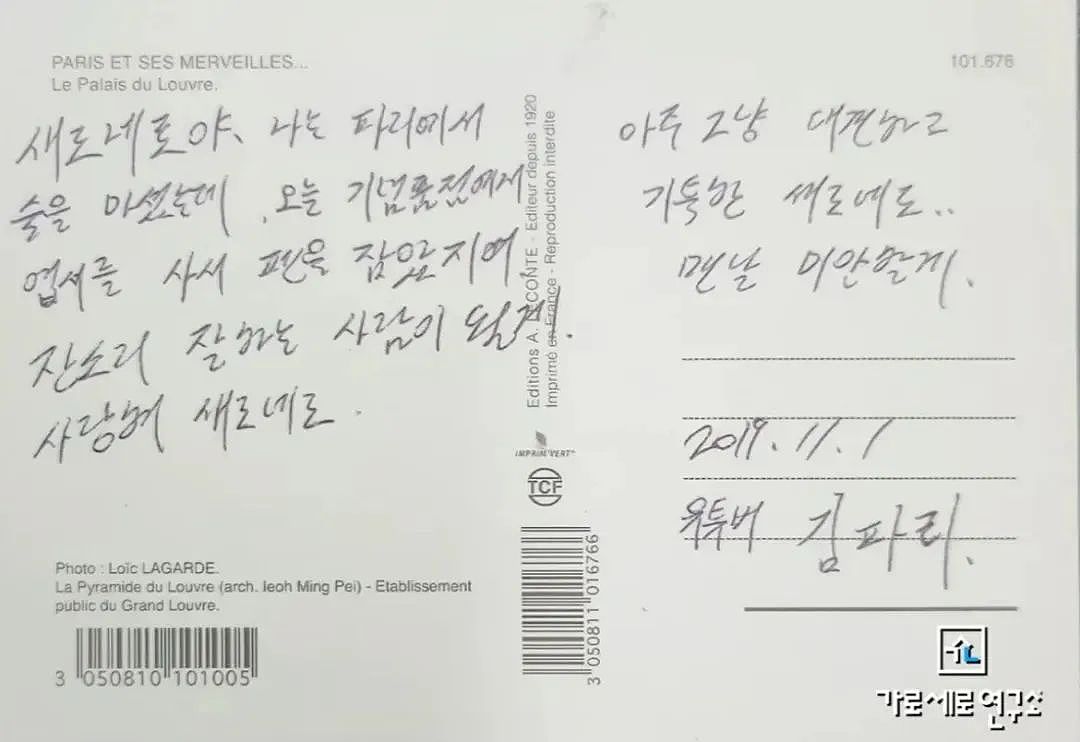 PARIS ET SES MERVEILLES...
Le Palais du Louvre.
101.676
새로네로야, 나는 파리에서
술을 마셨는데, 오는 기념품점에서
엽서를 사서 펜을 잡았지여.
잔소리 잘하는 사람이 될게.
사랑해 새로네로.
아주 그냥 대견하고
기특한 새로네로..
맨날 미안할게.
2019.11.1
유투버 김파리.
Editions A. LECONTE - Editeur depuis 1920
Imprimé en France - Reproduction interdite
IMPRIM'VERT
TCF
3 050811 016766
Photo : Loïc LAGARDE.
La Pyramide du Louvre (arch. Ieoh Ming Pei) - Etablissement
public du Grand Louvre.
3 050810 101005
가로세로연구소